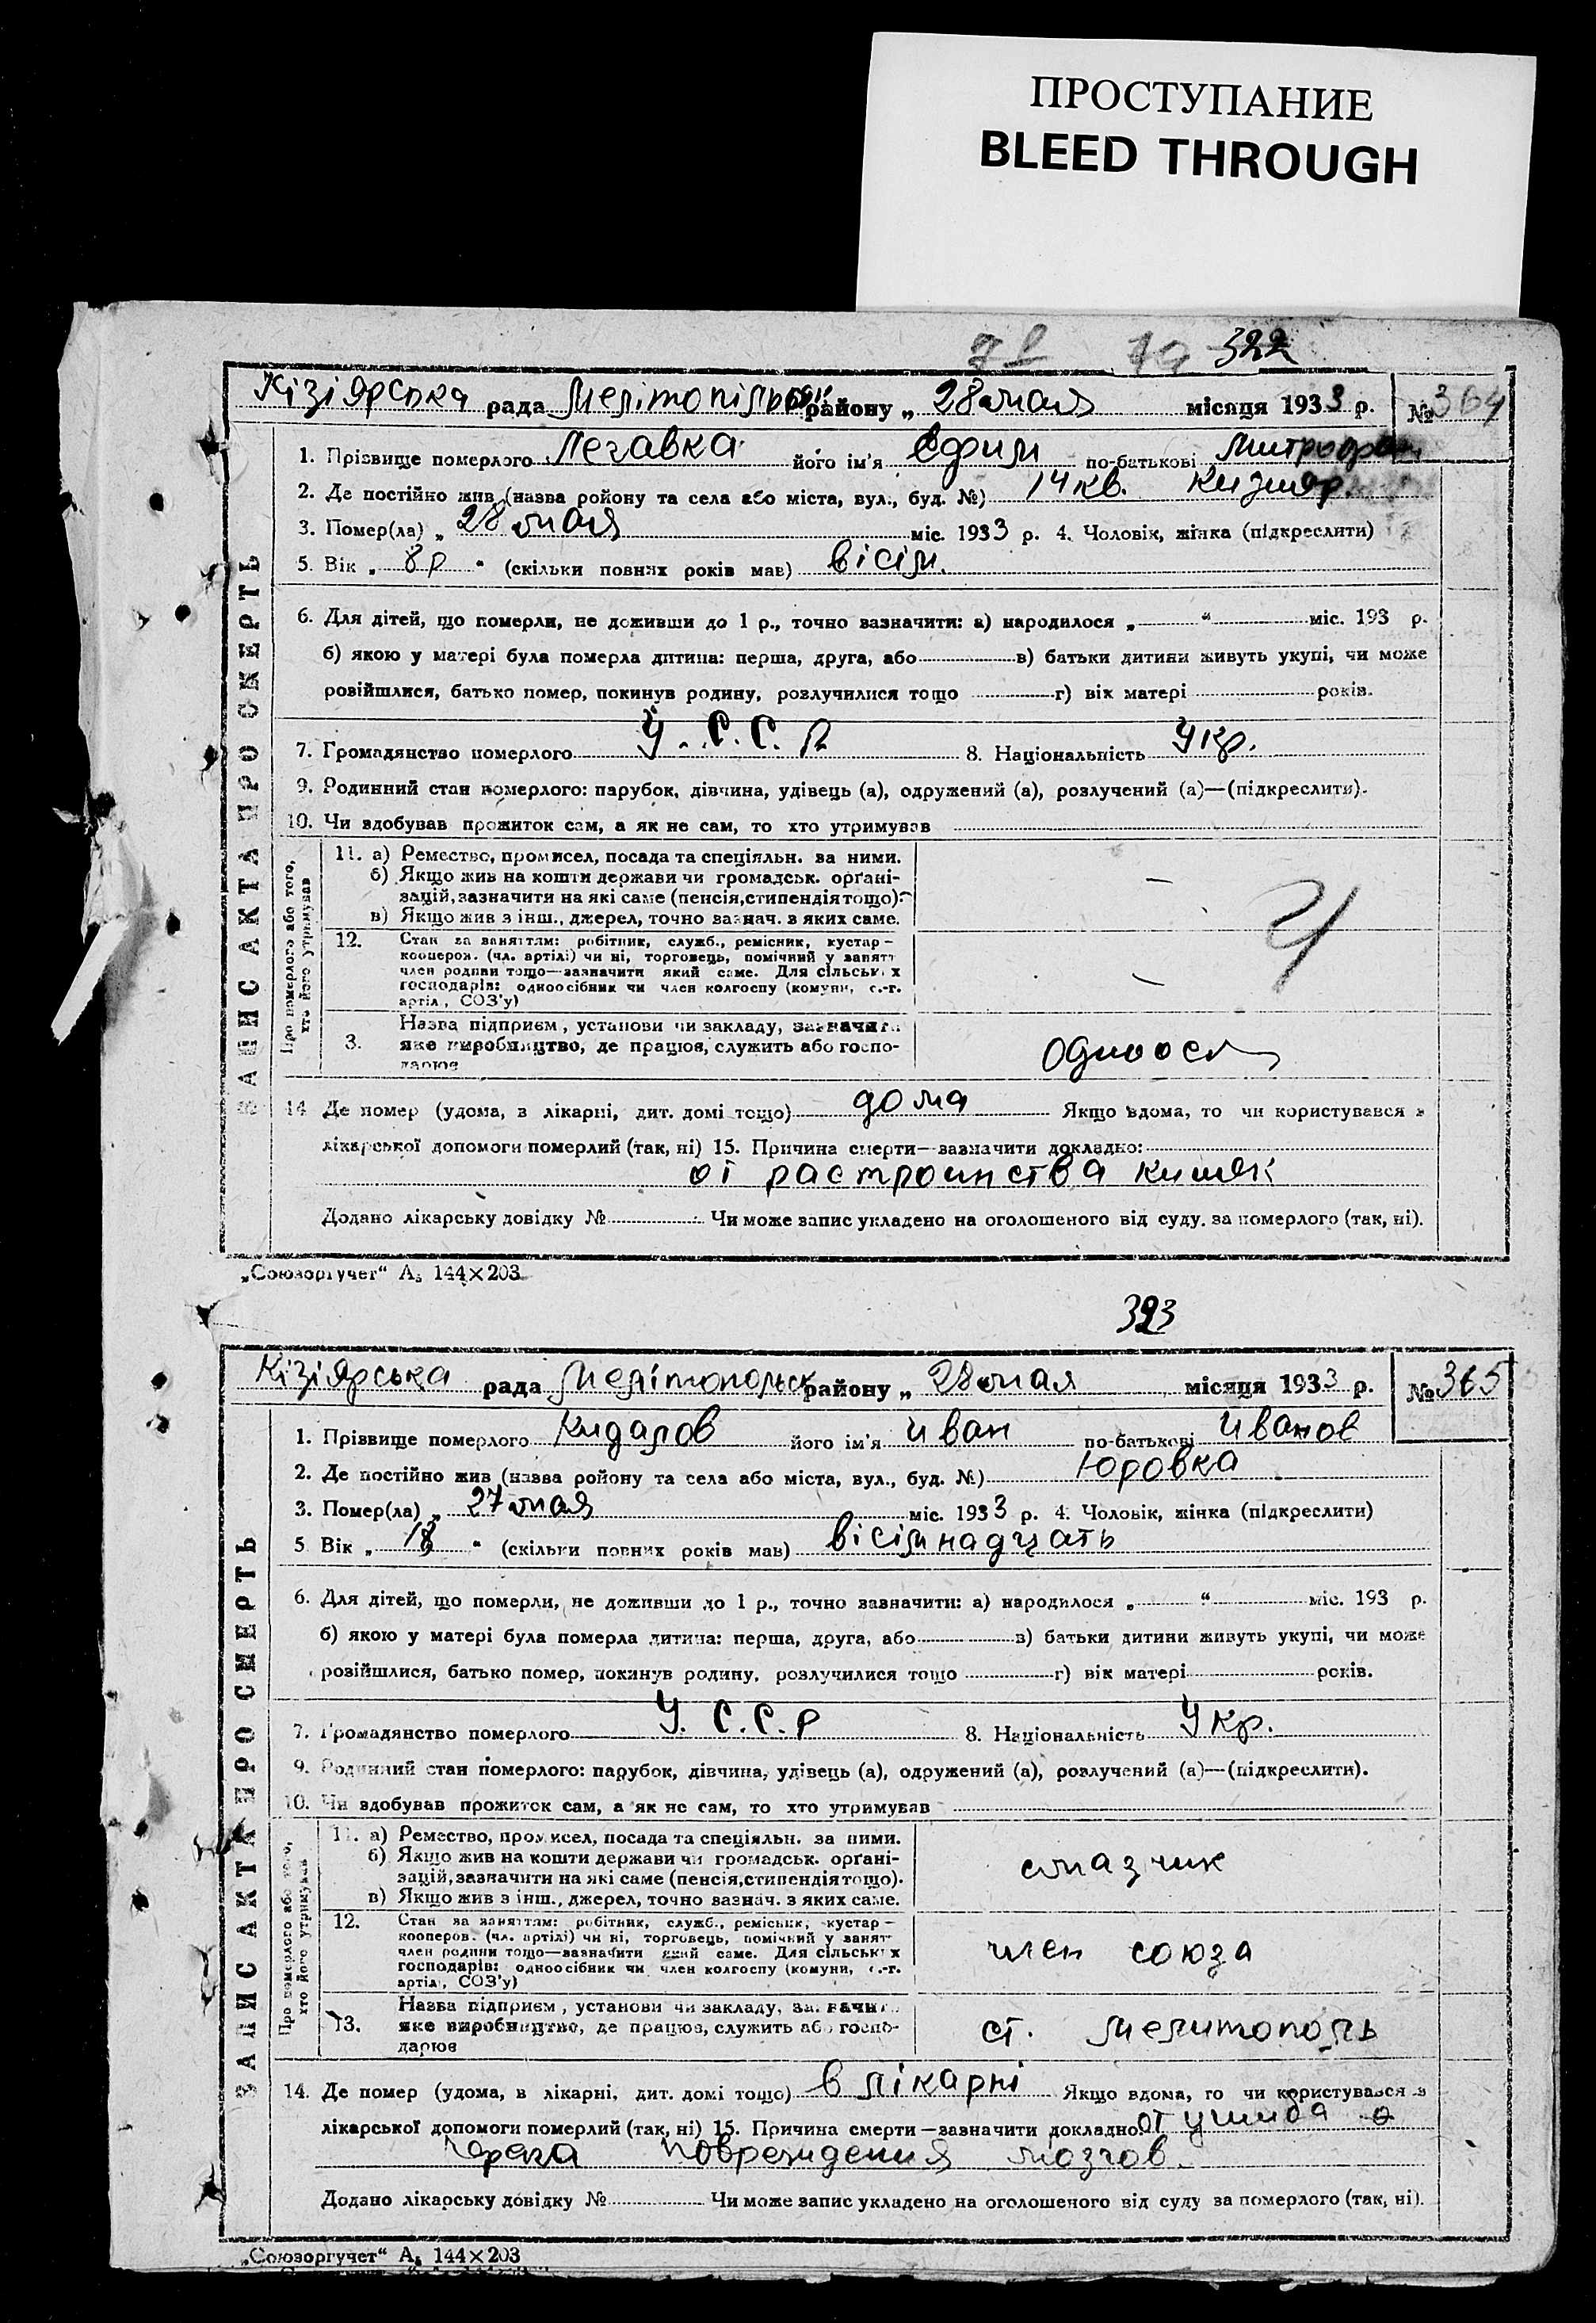 ПРОСТУПАНИЕ
BLEED THROUGH
322
Кізіярська рада Мелітопільськ району „ 28 мая місяця 1933 р. № 364
ЗАПИС АКТА ПРО СМЕРТЬ
1. Прізвище померлого Легавка його ім’я Ефим по-батькові Митрофан
2. Де постійно жив (назва ройону та села або міста, вул., буд. №) 14 кв. Кизияр
3. Помер(ла) „ 28 мая міс. 1933 р. 4. Чоловік, жінка (підкреслити)
5. Вік „ 8 р “ (скільки повних років мав) вісім.
6. Для дітей, що померли, не доживши до 1 р., точно зазначити: а) народилося „ “ міс. 193 р.
б) якою у матері була померла дитина: перша, друга, або в) батьки дитини живуть укупі, чи може
розійшлися, батько помер, покинув родину, розлучилися тощо г) вік матері років.
7. Громадянство померлого У. С. С. Р. 8. Національність Укр.
9. Родинний стан померлого: парубок, дівчина, удівець (а), одружений (а), розлучений (а)—(підкреслити).
10. Чи здобував прожиток сам, а як не сам, то хто утримував
Про померлого або того, хто його утримував
11. а) Ремество, промисел, посада та спеціяльн. за ними.
б) Якщо жив на кошти держави чи громадськ. орґані-
зацій, зазначити на які саме (пенсія, стипендія тощо). —
в) Якщо жив з інш., джерел, точно зазнач. з яких саме.
12. Стан за заняттям: робітник, служб., ремісник, кустар –
кооперов. (чл. артілі) чи ні, торговець, помічний у занятт
член родини тощо—зазначити який саме. Для сільських
господарів: одноосібник чи член колгоспу (комуни, с.-г. —
артіл., СОЗ’у)
Назва підприєм., установи чи закладу, зазначити
3. яке виробництво, де працює, служить або госпо- одноос
дарює
14 Де помер (удома, в лікарні, дит. домі тощо) дома Якщо вдома, то чи користувався з
лікарської допомоги померлий (так, ні) 15. Причина смерти—зазначити докладно:
от растроинства кишек
Додано лікарську довідку № Чи може запис укладено на оголошеного від суду за померлого (так, ні).
„Союзоргучет“ А₅ 144×203
323
Кізіярська рада Мелітопольск району „ 28 мая місяця 1933 р. № 365
ЗАПИС АКТА ПРО СМЕРТЬ
1. Прізвище померлого Кидалов його ім’я Иван по-батькові Иванов
2. Де постійно жив (назва ройону та села або міста, вул., буд. №) Юровка
3. Помер(ла) „ 27 мая міс. 1933 р. 4. Чоловік, жінка (підкреслити)
5 Вік „ 18 “ (скільки повних років мав) вісімнадцать
6. Для дітей, що померли, не доживши до 1 р., точно зазначити: а) народилося „ “ міс. 193 р.
б) якою у матері була померла дитина: перша, друга, або в) батьки дитини живуть укупі, чи може
розійшлися, батько помер, покинув родину, розлучилися тощо г) вік матері років.
7. Громадянство померлого У. С. С. Р 8. Національність Укр.
9. Родинний стан померлого: парубок, дівчина, удівець (а), одружений (а), розлучений (а)—(підкреслити).
10. Чи здобував прожиток сам, а як не сам, то хто утримував
Про померлого або того, хто його утримував
11. а) Ремество, промисел, посада та спеціяльн. за ними.
б) Якщо жив на кошти держави чи громадськ. орґані- смазчик
зацій, зазначити на які саме (пенсія, стипендія тощо).
в) Якщо жив з інш., джерел, точно зазнач. з яких саме.
12. Стан за заняттям: робітник, служб., ремісник, кустар –
кооперов. (чл. артілі) чи ні, торговець, помічний у занят
член родини тощо—зазначити який саме. Для сільських член союза
господарів: одноосібник чи член колгоспу (комуни, с.-г.
артіл., СОЗ’у)
Назва підприєм., установи чи закладу, зазначи
13. яке виробництво, де працює, служить або госпо- ст. Мелитополь
дарює
14. Де помер (удома, в лікарні, дит. домі тощо) в лікарні Якщо вдома, то чи користувався з
лікарської допомоги померлий (так, ні) 15. Причина смерти—зазначити докладно от ушиба
повреждения мозгов.
Додано лікарську довідку № Чи може запис укладено на оголошеного від суду за померлого (так, ні).
„Союзоргучет“ А₅ 144×203